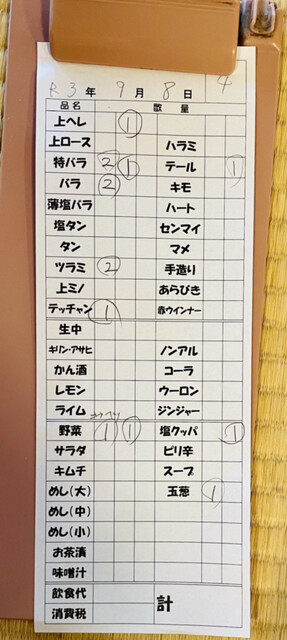 4
R 3 年 9 月 8 日
品名 数量
上ヘレ ①
上ロース ハラミ
特バラ ② ① テール ①
バラ ② キモ
薄塩バラ ハート
塩タン センマイ
タン マメ
ツラミ ② 手造り
上ミノ あらびき
テッチャン ① 赤ウインナー
生中
キリン・アサヒ ノンアル
かん酒 コーラ
レモン ウーロン
ライム ジンジャー
野菜 ① ① 塩クッパ ①
サラダ ピリ辛
キムチ スープ
めし(大) 玉葱 ①
めし(中)
めし(小)
お茶漬
味噌汁
飲食代 計
消費税